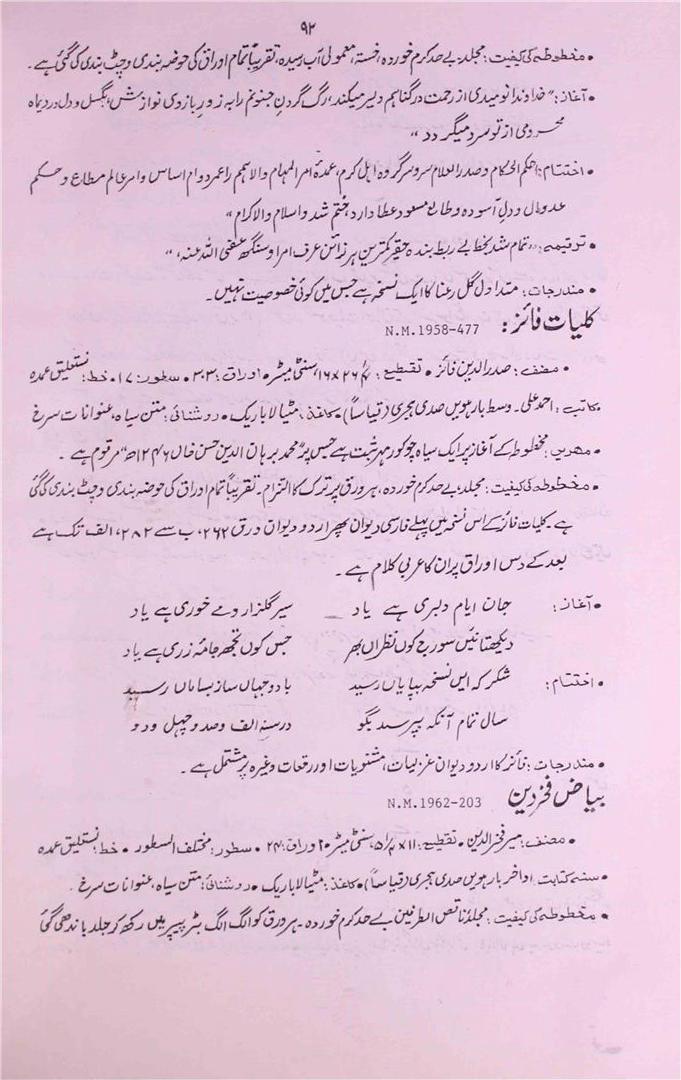 ۹۲
• مخطوطہ کی کیفیت : مجلد، بے حد کرم خوردہ، خستہ، معمولی آب رسیدہ، تقریباً تمام اوراق کی حوضہ بندی و چٹ بندی کی گئی ہے۔
• آغاز : " خداوندا نومیدی از رحمت در گناہم دلیر میکند، رگ گردنِ جنونم را بہ زور بازوی نوازش بگسل و دل در دیماہ
محرومی از تو سرد میگردد "
• اختتام : احکم الحکام و صدر العلام سرو سرگروہ اہل کرم، عمدۂ امر المہام والا ہمم را عمر دوام اساس و امر عالم مطاع و حکم
عدو مال و دلِ آسودہ و طالع مسعود عطا دارد، ختم شد والسلام والاکرام "
• ترقیمہ : " تمام شد بخط بے ربط بندہ حقیر کمترین ہر نرائن عرف امراو سنگھ عفی اللہ عنہ، "
• مندرجات : متداول گل رعنا کا ایک نسخہ ہے جس میں کوئی خصوصیت نہیں۔
کلیات فائز : N.M.1958-477
• مصنف : صدرالدین فائز • تقطیع : ۲۶ × ۱۶ سنٹی میٹر • اوراق : ۳۰۳ • سطور : ۱۷ • خط : نستعلیق عمدہ
• کاتب : احمد علی۔ وسط بارہویں صدی ہجری (قیاساً) • کاغذ : مٹیالا باریک • روشنائی : متن سیاہ، عنوانات سرخ
• مہریں : مخطوطہ کے آغاز پر ایک سیاہ چوکور مہر ثبت ہے جس پر "محمد برہان الدین حسن خاں ۱۲۴۶ھ" مرقوم ہے۔
• مخطوطہ کی کیفیت : مجلد، بے حد کرم خوردہ، ہر ورق پر ترک کا التزام۔ تقریباً تمام اوراق کی حوضہ بندی و چٹ بندی کی گئی
ہے۔ کلیات فائز کے اس نسخہ میں پہلے فارسی دیوان پھر اردو دیوان ورق ۲۶۲، ب سے ۲۸۲، الف تک ہے
بعد کے دس اوراق پر ان کا عربی کلام ہے۔
• آغاز : جان ایام دلبری ہے یاد سیر گلزار و مے خوری ہے یاد
دیکھتا نئیں سورج کوں نظراں بھر جس کوں تجھ جامۂ زری ہے یاد
• اختتام : شکر کہ ایں نسخہ بپایاں رسید باد و جہاں ساز بساماں رسید
سال تمام آنکہ بپرسد بگو در سنہ الف و صد و چہل و دو
• مندرجات : فائز کا اردو دیوان غزلیات، مثنویات اور رقعات وغیرہ پر مشتمل ہے۔
بیاض فخر دین N.M.1962-203
• مصنف : میر فخر الدین • تقطیع : ۱۱ × سنٹی میٹر • اوراق : ۲۴ • سطور : مختلف السطور • خط : نستعلیق عمدہ
• سنہ کتابت : اواخر بارہویں صدی ہجری (قیاساً) • کاغذ : مٹیالا باریک • روشنائی : متن سیاہ، عنوانات سرخ۔
• مخطوطہ کی کیفیت : مجلد، ناقص الطرفین، بے حد کرم خوردہ۔ ہر ورق کو الگ الگ بٹر پیپر میں رکھ کر جلد باندھی گئی